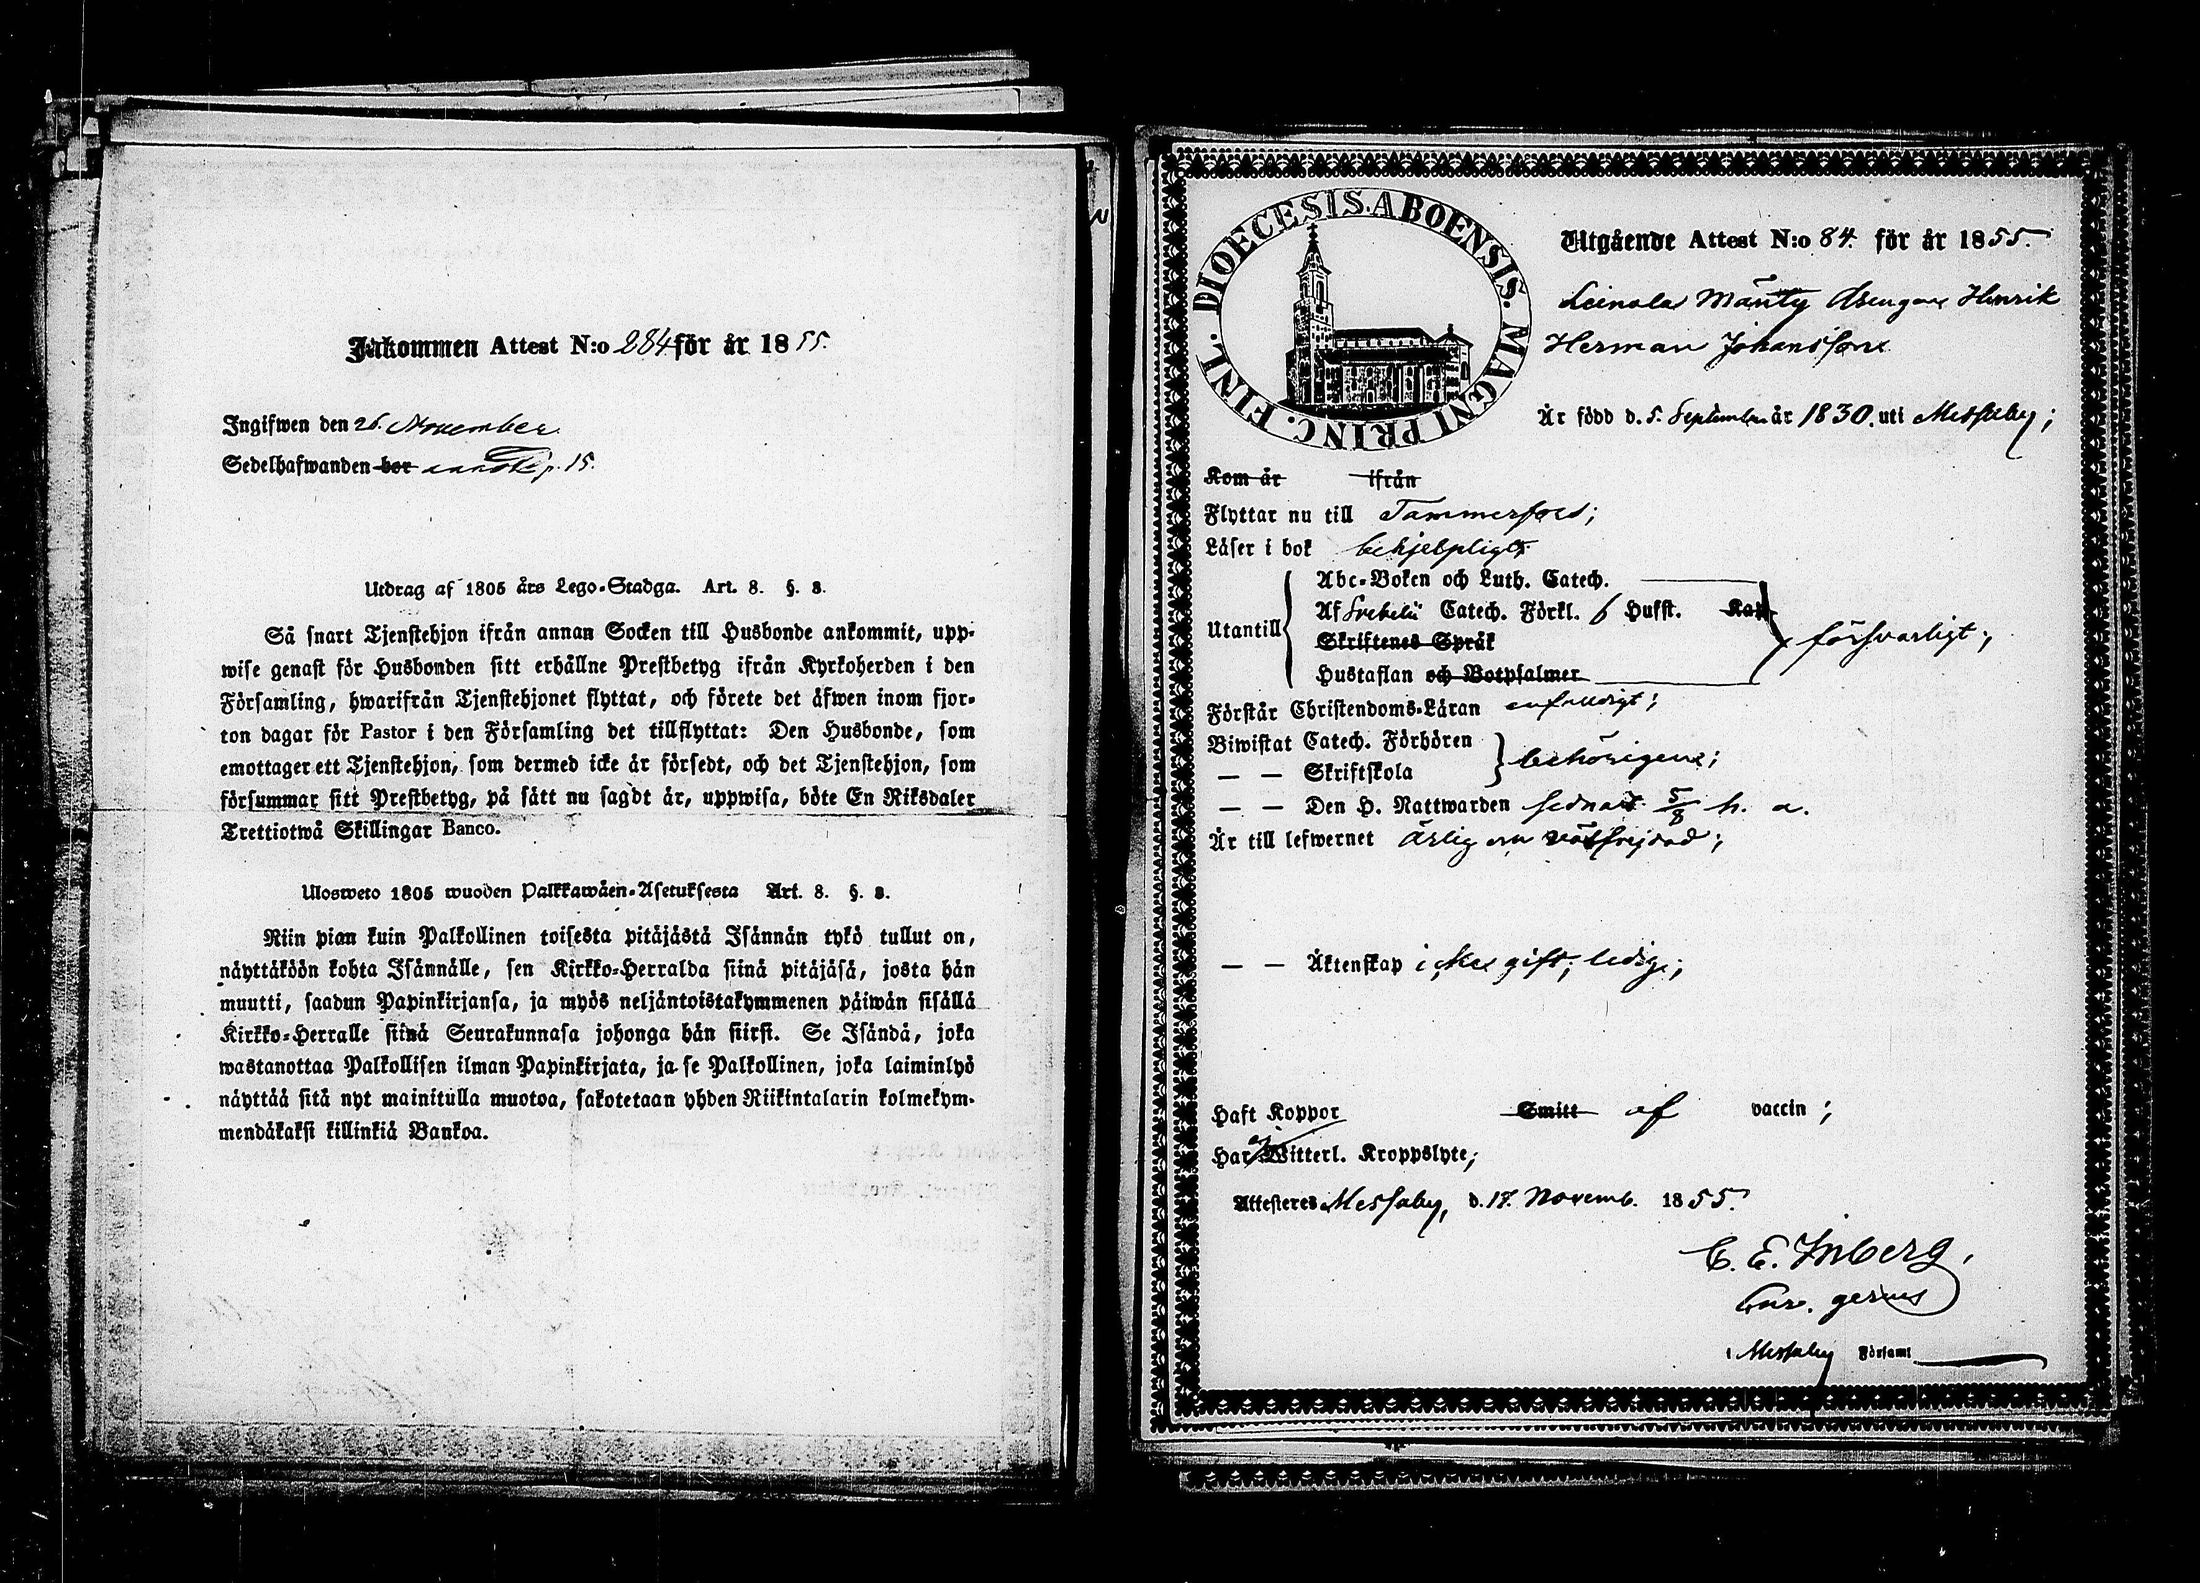 Inkommen Attest N:o 284 för år 1855.
Ingifwen den 26. November
Sedelhafwanden bor 15.
Utdrag af 1805 års Lego-Stadga. Art. 8. §. 8.
Så snart Tjenstehjon ifrån annan Socken till Husbonde ankommit, upp-
wise genast för Husbonden sitt erhållne Prestbetyg ifrån Kyrkoherden i den
Församling, hwarifrån Tjenstehjonet flyttat, och förete det äfwen inom fjor-
ton dagar för Pastor i den Församling det tillflyttat: Den Husbonde, som
emottager ett Tjenstehjon, som dermed icke är försedt, och det Tjenstehjon, som
försummar sitt Prestbetyg, på sätt nu sagdt är, uppwisa, böte En Riksdaler
Trettiotwå Skillingar Banco.
Ulosweto 1805 wuoden Palkkawäen-Asetuksesta Art. 8. §. 8.
Niin pian kuin Palkollinen toisesta pitäjästä Isännän tykö tullut on,
näyttäköön kohta Isännälle, sen Kirkko-Herralda siinä pitäjäsä, josta hän
muutti, saadun Papinkirjansa, ja myös neljäntoistakymmenen päiwän sisällä
Kirkko-Herralle siinä Seurakunnasa johonga hän siirsi. Se Isändä, joka
wastanottaa Palkollisen ilman Papinkirjata, ja se Palkollinen, joka laiminlyö
näyttää sitä nyt mainitulla muotoa, sakotetaan yhden Riikintalarin kolmekym-
mendäkaksi killinkiä Bankoa.
FINL. DIOECESIS. ABOENSIS. MAGNI PRINC.
Utgående Attest N:o 84. för år 1855.
Leinola Mänty drengen Henrik
Herman Johansson
Är född d. 5. September år 1830. uti Messuby;
Kom år ifrån
Flyttar nu till Tammerfors;
Läser i bok behjelpligt;
Utantill
Abc-Boken och Luth. Catech.
Af Svebelii Catech. Förkl. 6 Hufst. Kap.
Skriftenes Språk
Hustaflan och Botpsalmer
försvarligt;
Förstår Christendoms-Läran enfaldigt;
Biwistat Catech. Förhören
— — Skriftskola
behörigen;
— — Den H. Nattwarden sednast 5/8 h. a.
Är till lefwernet ärlig och välfrejdad;
— — Äktenskap icke gift; ledig;
Haft Koppor Smitt af vaccin;
Har ej Witterl. Kroppslyte;
Attesteres Messuby, d. 17. Novemb. 1855.
C. E. Inberg,
i Messuby Församl